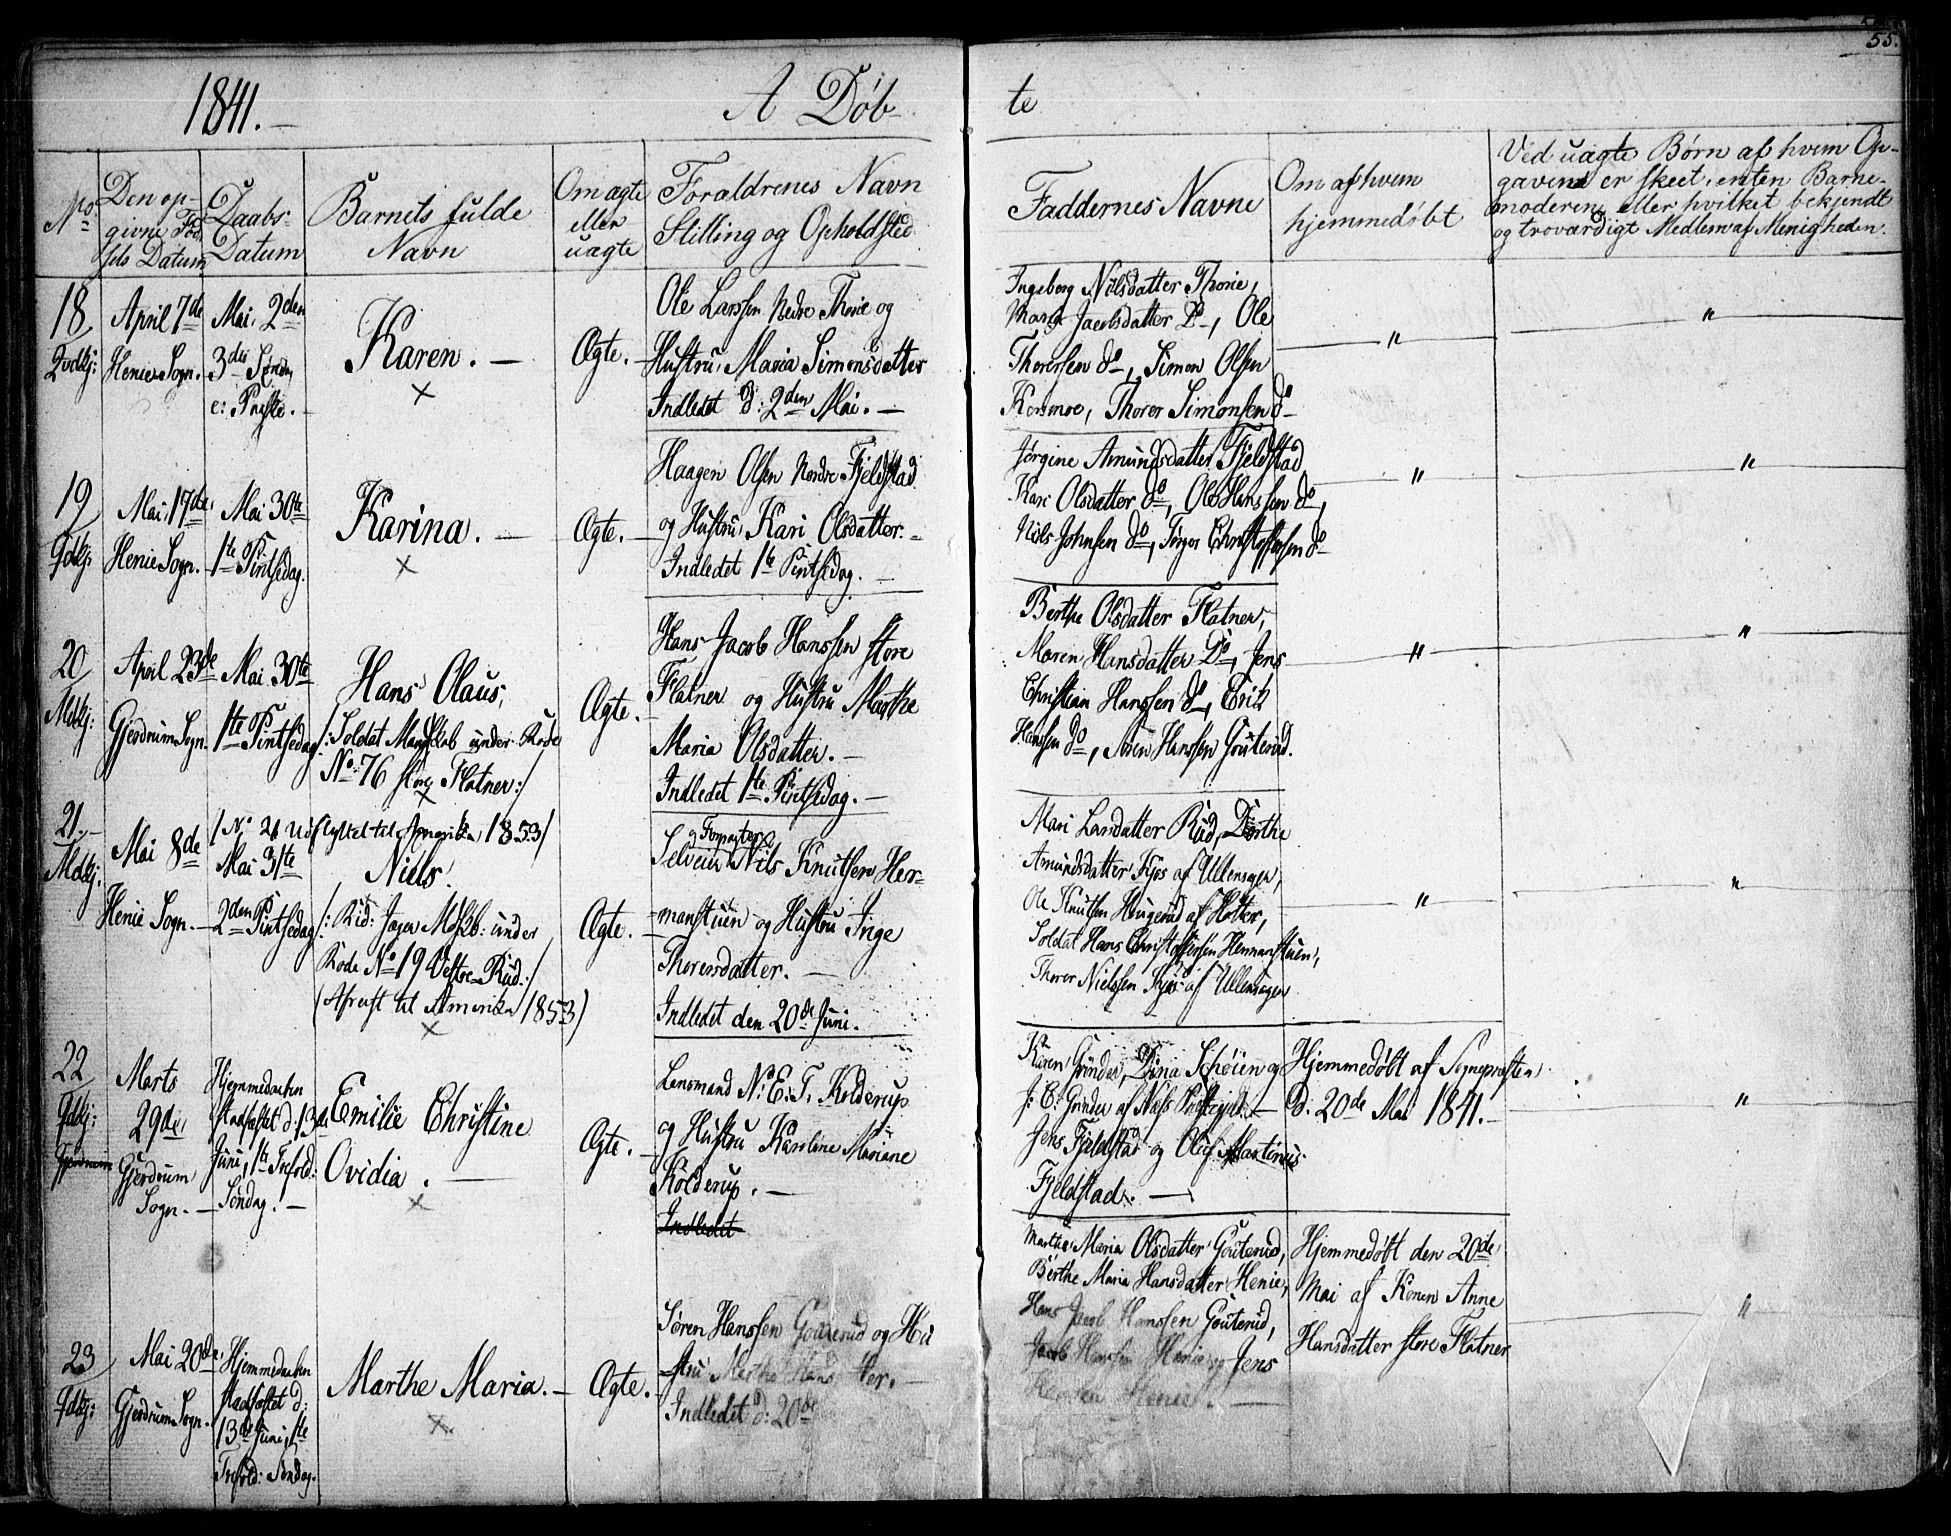 55.
1841.
A Döb
te
No
Den op-
givne Fød
sels Datum
Daabs-
Datum
Barnets fulde
Navn
Om ægte
eller
uægte
Forældrenes Navn
Stilling og Opholdsted
Faddernes Navne
Om af hvem
hjemmedøbt
Ved uægte Børn af hvem Op-
gaven er skeet, enten Barne-
moderen, eller hvilket bekjendt
og troværdigt Medlem af Menigheden.
18
Qvdkj:
April 7de
Henie Sogn.
Mai, 2den
3die Sønda,
e: Paaske.
Karen. —
×
Ægte. —
Ole Larssen Nedre Thorie og
Hustru, Maria Simonsdatter
Indledet d: 2den Mai. —
Ingeborg Nilsdatter Thorie,
Jacobsdatter Do, Ole
Thorersen do, Simon Olsen
Kosmoe, Thorer Simonsen do
"
"
19
Qdkj:
Mai, 17de,
Henie Sogn. —
Mai 30te
1te Pintsedag.
Karina. —
×
Ægte. —
Haagen Olsen Nordre Fjeldstad
og Hustru, Kari Olsdatter. —
Indledet 1te Pintsedag. —
Jørgine Amundsdatter Fjeldstad
Kari Olsdatter do, Ole Hanssen do,
Nils Johnsen do, Christoffersen do
"
"
20
Mdkj:
April 23de
Gjerdrum Sogn.
Mai 30te
1te Pintsedag
Hans Olaus,
/: Soldat Mandskab under Rode
No 76 store Flatner :/
×
Ægte. —
Hans Jacob Hanssen store
Flatner og Hustru Marthe
Maria Olsdatter. —
Indledet 1te Pintsedag. —
Berthe Olsdatter Flatner,
Maren Hansdatter Do, Jens
Christian Hanssen do, Erik
Hanssen do, Søren Hanssen Gouterud.
"
"
21. —
Mdkj:
Mai 8de
Henie Sogn. —
/ No 21 Udflyttet til Amerika 1853/
Mai 31te
2den Pintsedag
Niels.
/: Rid: Jæger Mdskb: under
Rode No 19 Vestre Rud :/
(Afreist til Amerika 1853)
×
Ægte. —
og Forpagter
Selveier Nils Knutsen Her-
manstuen og Hustru Inge
Thorersdatter. —
Indledet den 20de Juni.
Mari Larsdatter Rud, Dorthe
Amundsdatter Kjos af Ullensager,
Ole Knutsen Haugerud af Holter,
Soldat Hans Christoffersen Hermanstuen,
Thorer Nielssen Kjos af Ullensager
"
"
22
Qdkj:
Gjerdrum
Marts
29de,
Gjerdrum
Sogn. —
Hjemmedaaben
stadfæstet d: 13de
Juni, 1te Trefold:
Søndag. —
Emilie Christine
Ovidia. —
×
Ægte. —
Lensmand N: E: T. Kolderup
og Hustru Karoline Mariane
Kolderup. —
Indledet
Karen Grønder, Dina Schøien og
J: E: Grønder af Næs Præstegjeld. —
Jens Fjeldstad og Oluf Martinius
Fjeldstad. —
Hjemmedøbt af Sognepræsten,
d: 20de Mai 1841. —
"
23
Qdkj:
Mai 20de,
Gjerdrum Sogn.
Hjemmedaaben
stadfæstet d:
13de Juni, 1te
Trefold: Søndag.
Marthe Maria. —
×
Ægte. —
Søren Hanssen Gouterud og Hu
stru Marthe Hans tter. —
Indledet d: 20de
Marthe Maria Olsdatter Gouterud,
Berthe Maria Hansdatter Henie,
Hans Jacob Hanssen Gouterud,
Jacob Hanssen Henie og Jens
Hanssen Henie. —
Hjemmedøbt den 20de,
Mai af Konen Anne
Hansdatter store Flatner
"